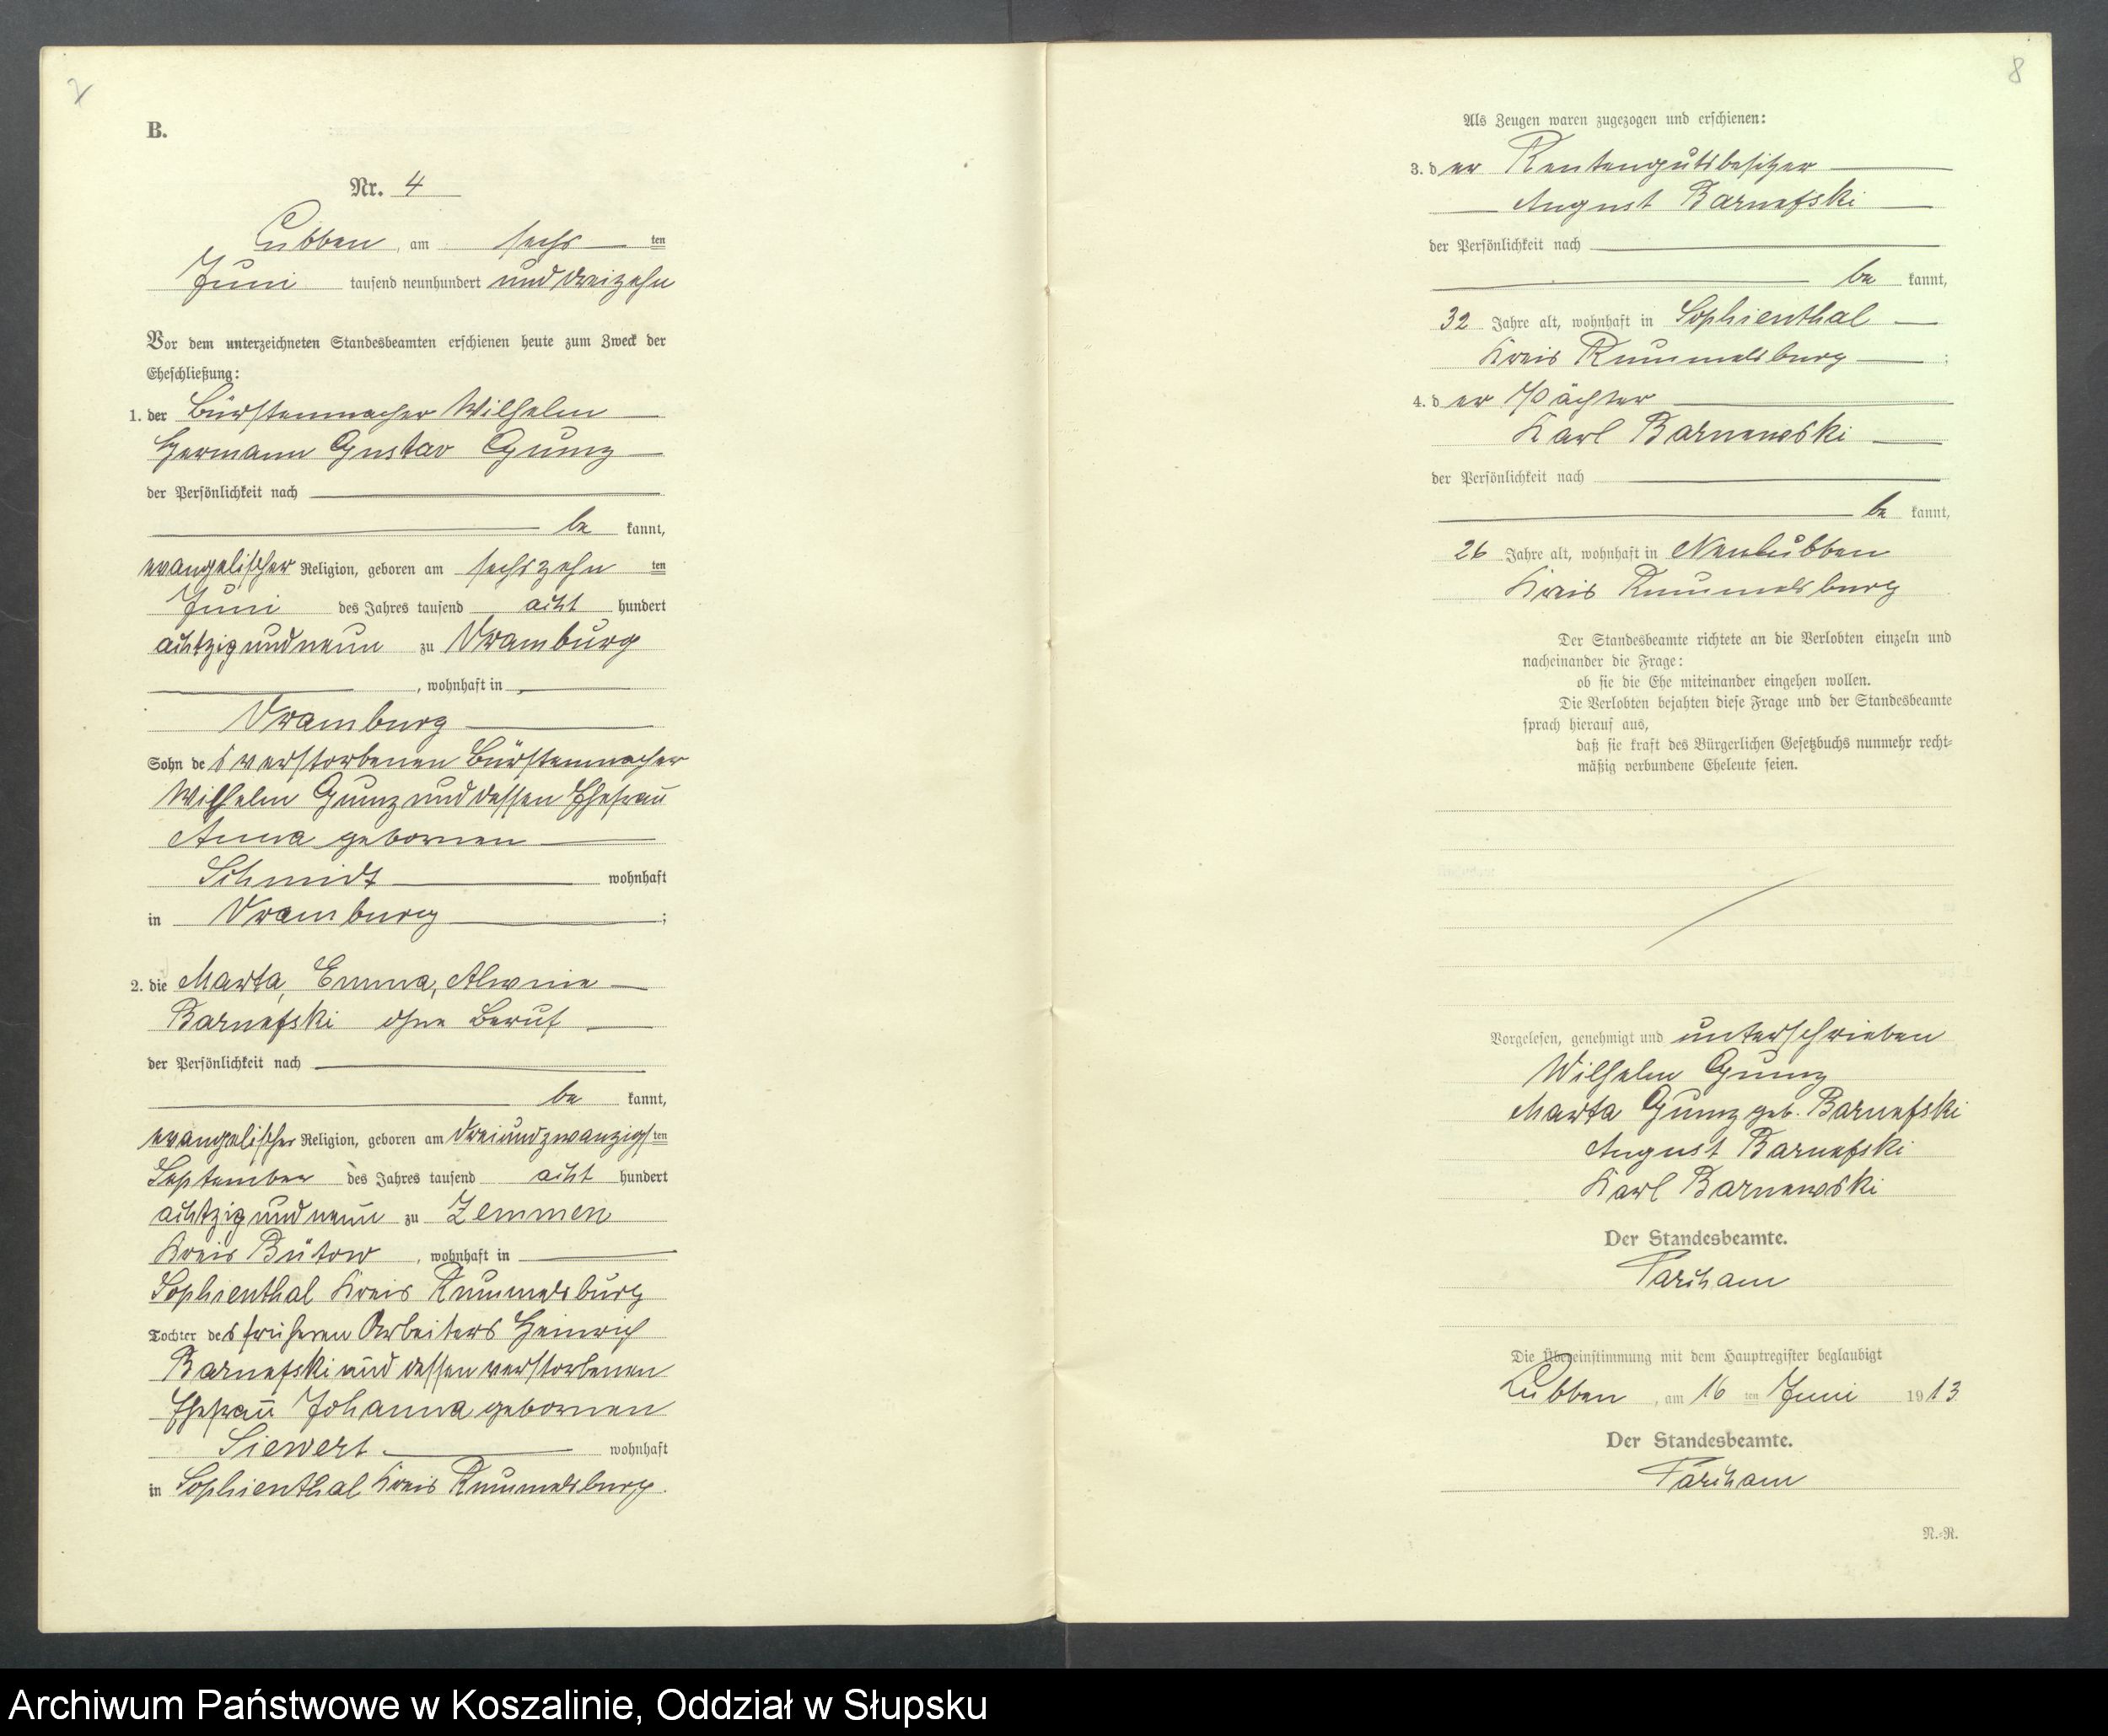 B.
Nr. 4
Lubben, am sechs ten
Juni tausend neunhundert und dreizehn
Vor dem unterzeichneten Standesbeamten erschienen heute zum Zweck der
Eheschließung:
1. der Bürstenmacher Wilhelm
Hermann Gustav Gumz
der Persönlichkeit nach
be kannt,
evangelischer Religion, geboren am sechszehn ten
Juni des Jahres tausend acht hundert
achtzig und neun zu Dramburg
, wohnhaft in
Dramburg
Sohn des verstorbenen Bürstenmacher
Wilhelm Gumz und dessen Ehefrau
Anna gebornen
Schmidt wohnhaft
in Dramburg ;
2. die Marta, Emma, Alwine
Barnefski ohne Beruf
der Persönlichkeit nach
be kannt,
evangelischer Religion, geboren am dreiundzwanzigsten
September des Jahres tausend acht hundert
achtzig und neun zu Zemmen
Kreis Bütow, wohnhaft in
Sophienthal Kreis Rummelsburg
Tochter des früheren Arbeiters Heinrich
Barnefski und dessen verstorbenen
Ehefrau Johanna gebornen
Siewert wohnhaft
in Sophienthal Kreis Rummelsburg.
8
Als Zeugen waren zugezogen und erschienen:
3. der Rentengutsbesitzer
August Barnefski
der Persönlichkeit nach
be kannt,
32 Jahre alt, wohnhaft in Sophienthal
Kreis Rummelsburg ;
4. der Pächter
Karl Barnewski
der Persönlichkeit nach
be kannt,
26 Jahre alt, wohnhaft in Neulubben
Kreis Rummelsburg
Der Standesbeamte richtete an die Verlobten einzeln und
nacheinander die Frage:
ob sie die Ehe miteinander eingehen wollen.
Die Verlobten bejahten diese Frage und der Standesbeamte
sprach hierauf aus,
daß sie kraft des Bürgerlichen Gesetzbuchs nunmehr recht-
mäßig verbundene Eheleute seien.
Vorgelesen, genehmigt und unterschrieben
Wilhelm Gumz
Marta Gumz geb. Barnefski
August Barnefski
Karl Barnewski
Der Standesbeamte.
Die Übereinstimmung mit dem Hauptregister beglaubigt
Lubben, am 16 ten Juni 1913
Der Standesbeamte.
N.-R.
Archiwum Państwowe w Koszalinie, Oddział w Słupsku